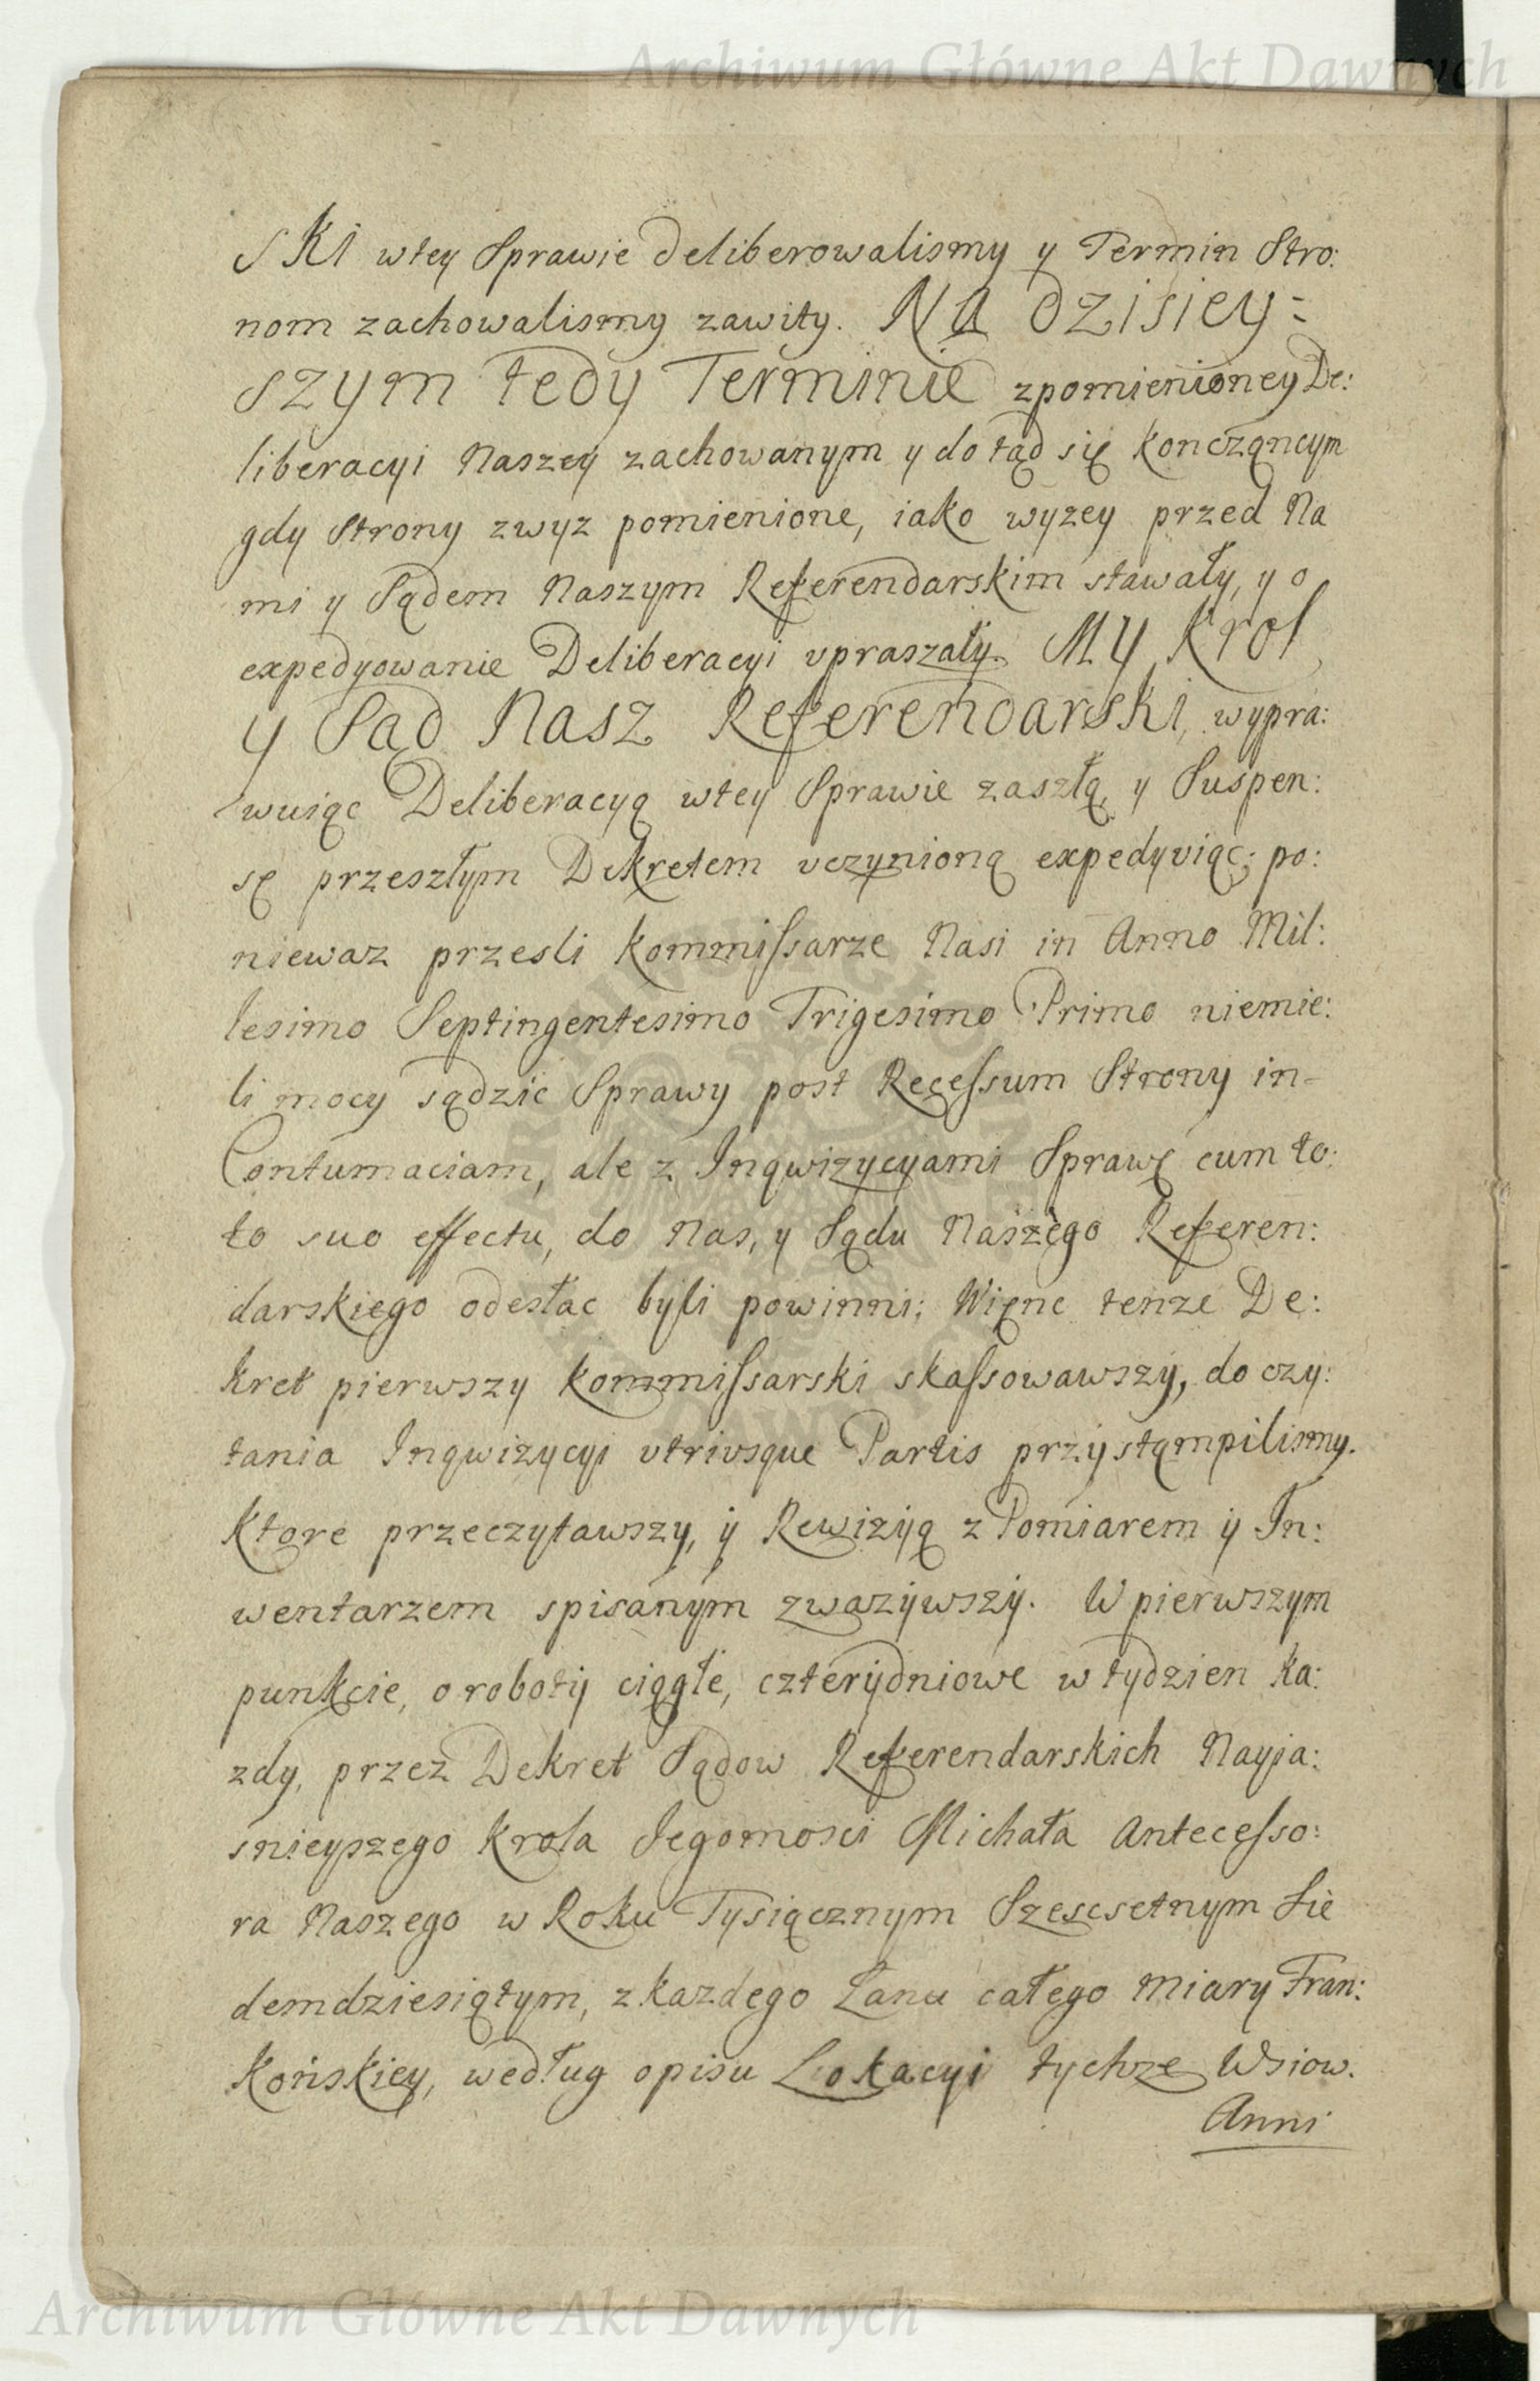 Archiwum Główne Akt Dawnych
SKI wtey Sprawie deliberowalismy y Termin Stro:
nom zachowalismy zawity. Na dzisiey=
szym tedy Terminie zpomienioney De:
liberacyi Naszey zachowanym y do tąd się konczącym
gdy Strony zwyz pomienione, iako wyzey przed Na
mi y Sądem Naszym Referendarskim stawały, y o
expedyowanie Deliberacyi vpraszały. My Krol
y Sąd Nasz Referendarski, wypra:
wuiąc Deliberacyą wtey Sprawie zaszłą, y Suspen:
sę przeszłym Dekretem vczynioną expedyviąc; po:
niewaz przesli Kommissarze Nasi in Anno Mil:
lesimo Septingentesimo Trigesimo Primo niemie:
li mocy sądzić Sprawy post Recessum Strony in=
Contumaciam, ale z Inqwizycyami Sprawę cum to:
to suo effectu, do Nas, y Sądu Naszego Referen:
darskiego odesłac byli powinni; Więnc tenze De:
kret pierwszy Kommissarski skassowawszy, do czy:
tania Inqwizycyi vtriusque Partis przystąmpilismy.
Ktore przeczytawszy, y Rewizyą z Pomiarem y In:
wentarzem spisanym zwazywszy. W pierwszym
punkcie, o roboty ciągłe, czterydniowe w tydzien ka:
zdy, przez Dekret Sądow Referendarskich Nayja:
snieyszego Krola Jegomosci Michała Antecesso:
ra Naszego w Roku Tysiącznym Szescsetnym Sie
demdziesiątym, z kazdego Łanu całego miary Fran:
końskiey, według opisu Lokacyi tychze Wsiow.
Anni
Archiwum Główne Akt Dawnych